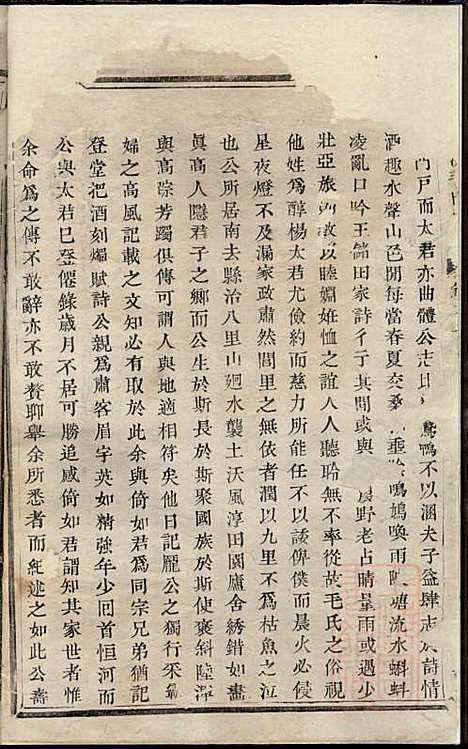 門戸而太君亦曲體公志日鶩鴨不以溷夫子益肆志於詩情
酒趣水聲山色閒每當春夏交桑垂鳴鳩喚雨陂塘流水蝌蚪
凌亂口吟王儲田家詩彳亍其間或與農野老占晴量雨或遇少
壯亞旅以睦婣姙恤之誼人人聽聆無不率從故毛氏之俗視
他姓爲醇楊太君尤儉而慈力所能任者不以諉俾僕而晨火必侵
星夜燈不及漏家政肅然里之無依者潤以九里不爲枯魚之泣
也公所居南去縣治八里山廻水襲土沃風淳田園廬舍綉錯如畫
眞高人隱君子之鄉而公生於斯長於斯聚國族於斯使褒斜陸渾
與高踪芳躅俱傳可謂人與地適相符矣他日記龎公之獨行采
婦之高風記載之文知必有取於此余與倚如君爲同宗兄弟猶記
登堂把酒刻燭賦詩公親爲肅客眉宇英如精強年少回首恒河而
公與太君已登僊錄歲月不居可勝追感倚如君謂知其家世者惟
余命爲之傳不敢辭亦不敢贅聊舉余所悉者而紀述之如此公壽